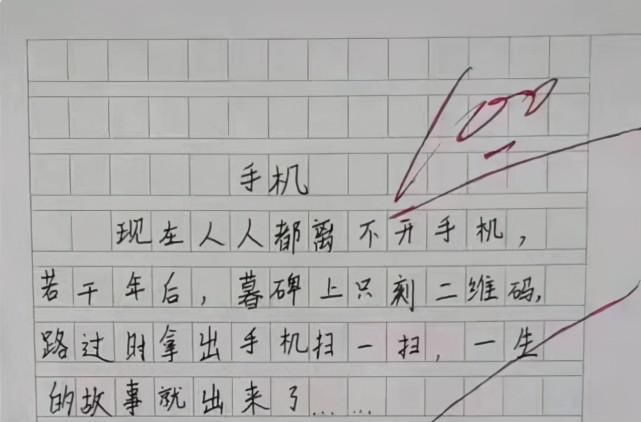 100
手机
现在人人都离不开手机，
若干年后，暮碑上只刻二维码，
路过时拿出手机扫一扫，一生
的故事就出来了……